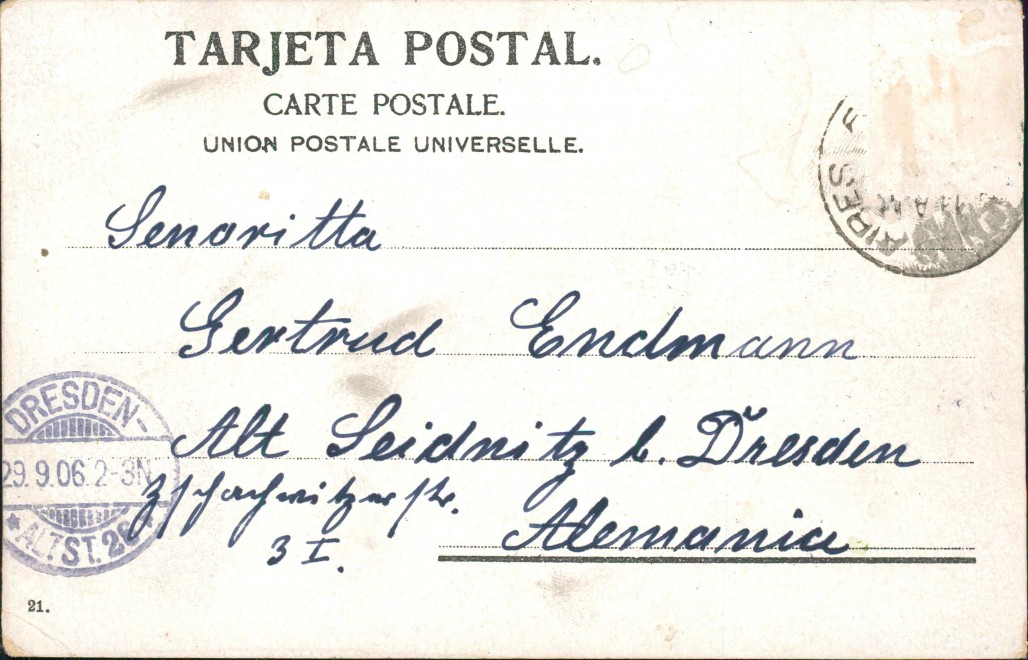 TARJETA POSTAL.
CARTE POSTALE.
UNION POSTALE UNIVERSELLE.
AIRES
11 A.M
Senoritta
Gertrud Endmann
Alt Seidnitz b. Dresden
Zschachwitzerstr.
3 I.
Alemania
DRESDEN-
29.9.06.2-3N
* ALTST. 26 *
21.